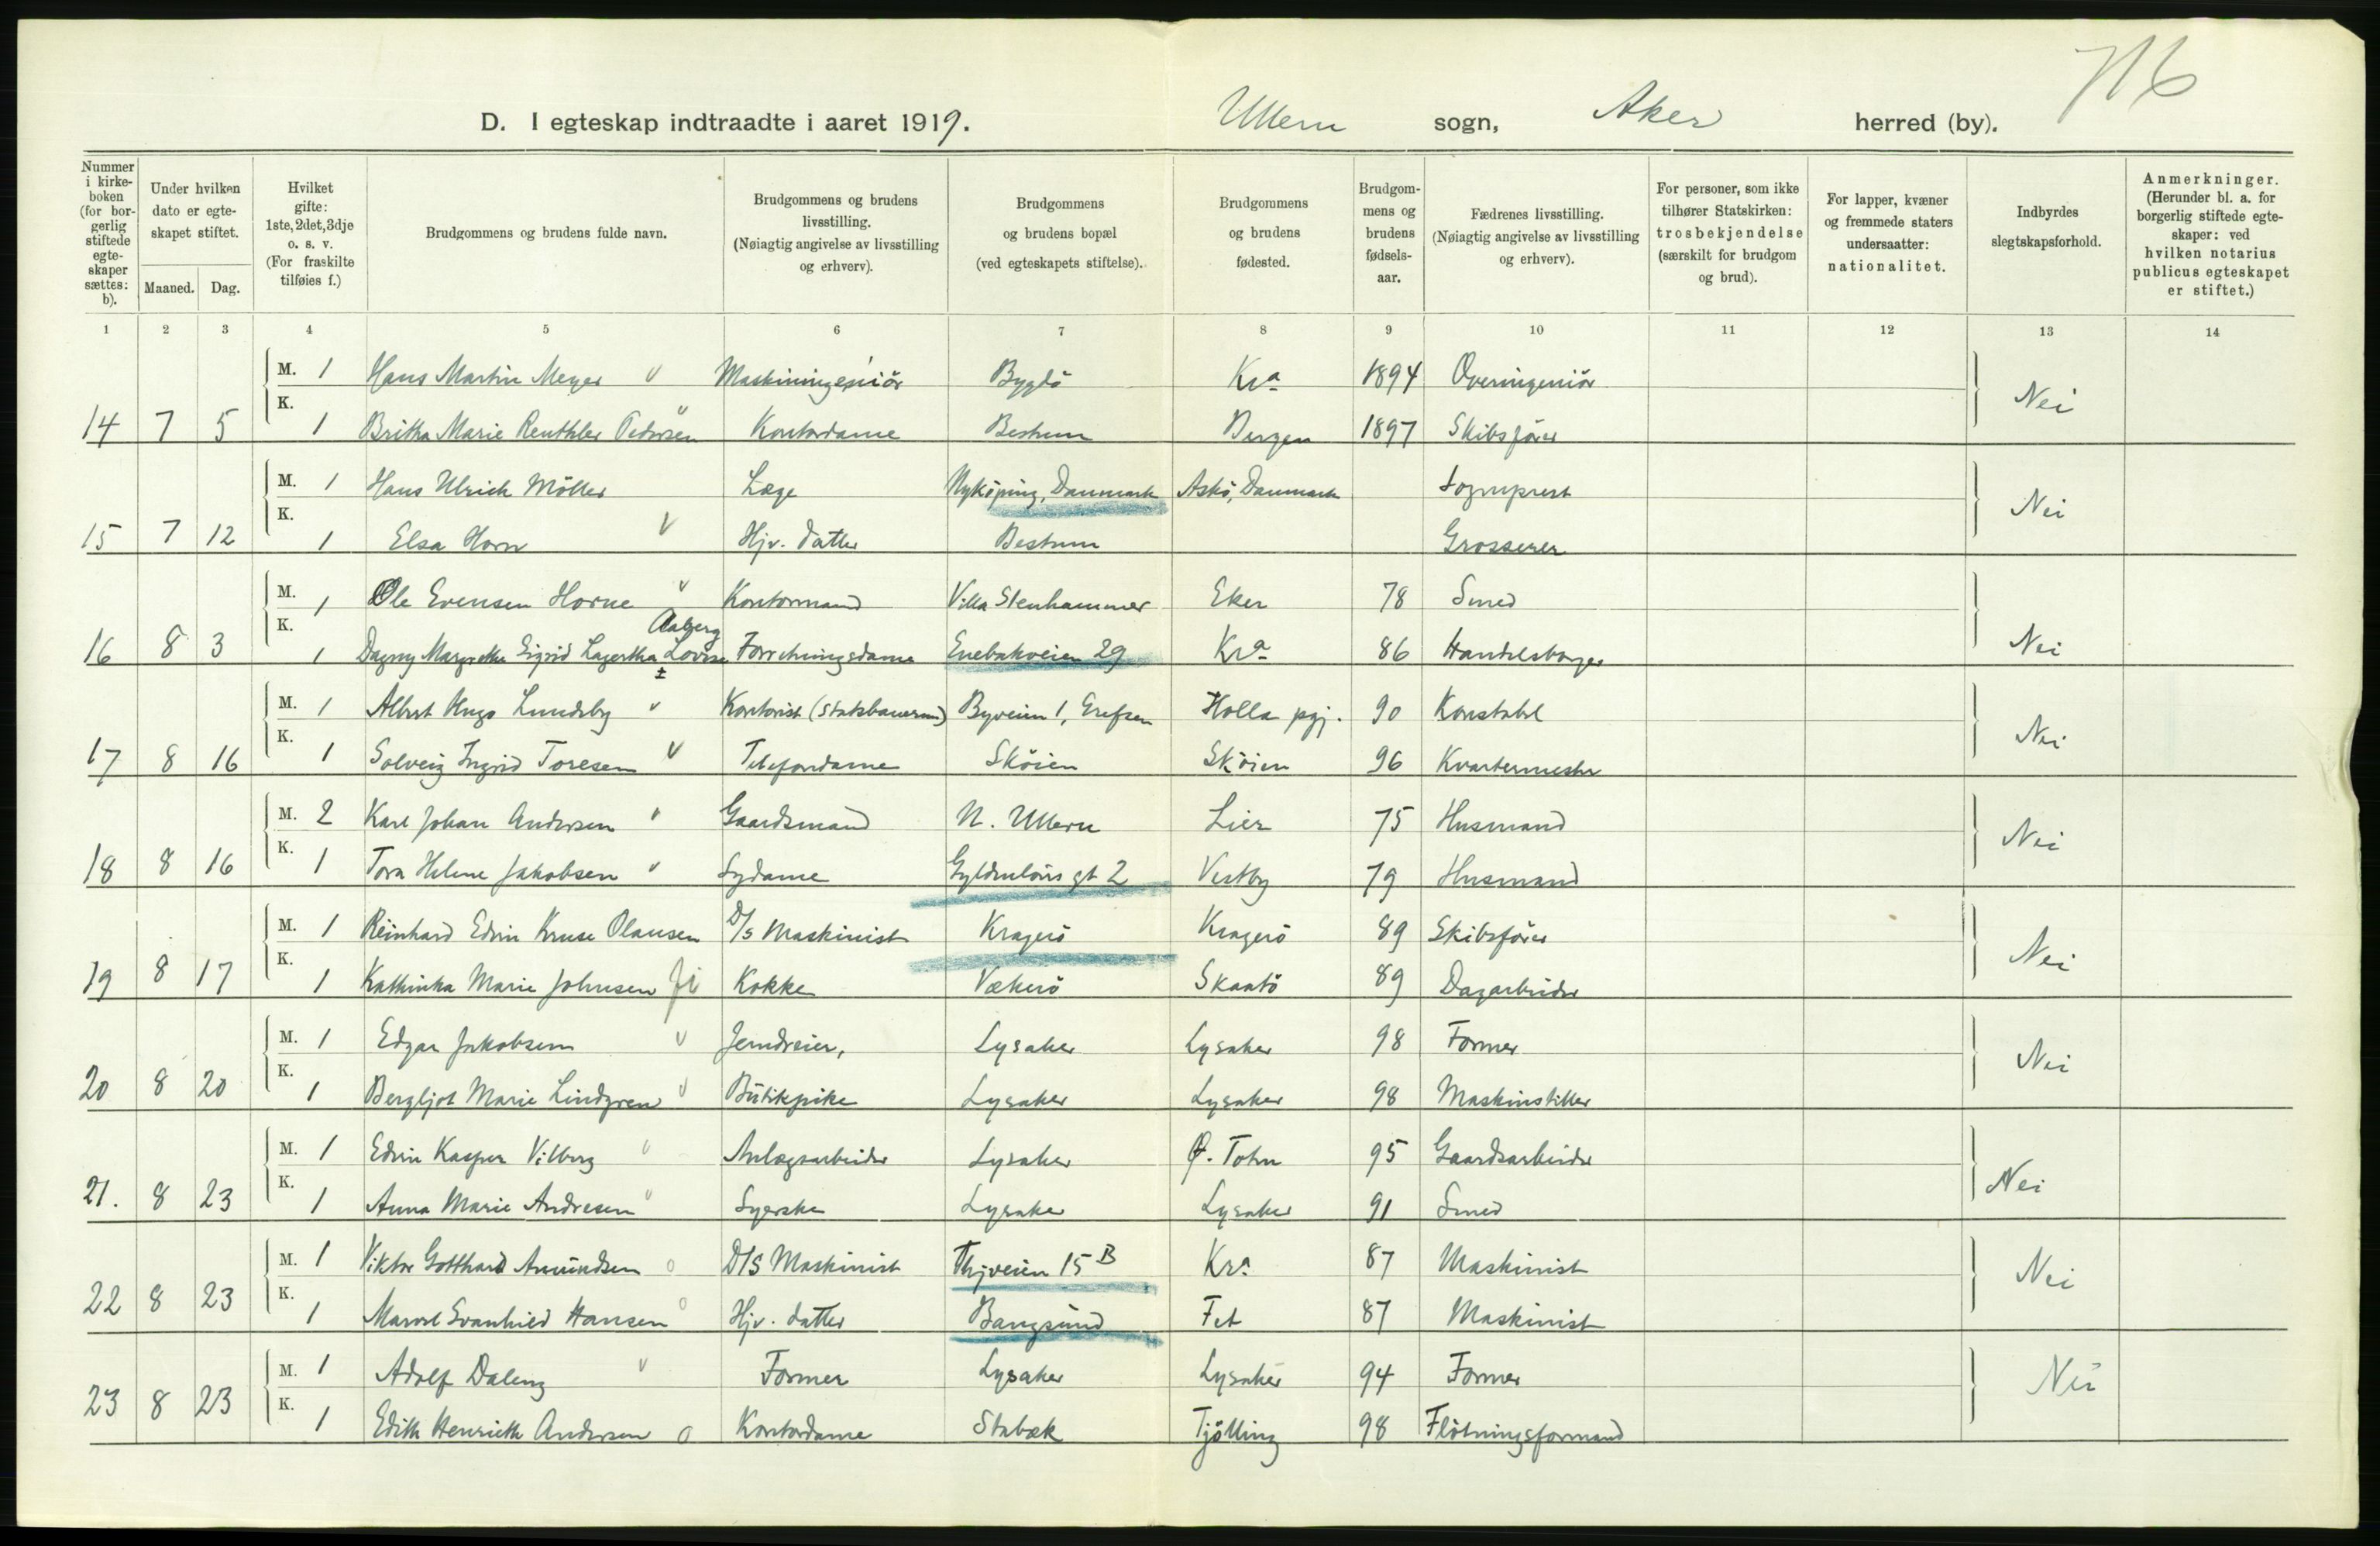 716
D. I egteskap indtraadte i aaret 1919. Ullern sogn, Aker herred (by).
Nummer i kirkeboken (for borgerlig stiftede egteskaper sættes: b). Under hvilken dato er egteskapet stiftet. Maaned. Dag. Hvilket gifte: 1ste, 2det, 3dje o. s. v. (For fraskilte tilføies f.) Brudgommens og brudens fulde navn. Brudgommens og brudens livsstilling. (Nøiagtig angivelse av livsstilling og erhverv). Brudgommens og brudens bopæl (ved egteskapets stiftelse). Brudgommens og brudens fødested. Brudgommens og brudens fødselsaar. Fædrenes livsstilling. (Nøiagtig angivelse av livsstilling og erhverv). For personer, som ikke tilhører Statskirken: trosbekjendelse (særskilt for brudgom og brud). For lapper, kvæner og fremmede staters undersaatter: nationalitet. Indbyrdes slegtskapsforhold. Anmerkninger. (Herunder bl. a. for borgerlig stiftede egteskaper: ved hvilken notarius publicus egteskapet er stiftet.)
1 2 3 4 5 6 7 8 9 10 11 12 13 14
M. 1 Hans Martin Meyer Maskiningeniör Bygdö Kra 1894 Overingeniör
14 7 5 K. 1 Britha Marie Reuthler Pedersen Kontordame Bestum Bergen 1897 Skibsförer Nei
M. 1 Hans Ulrich Möller Læge Nyköping, Danmark Askö, Danmark Sogneprest
15 7 12 K. 1 Elsa Horn Hjv. datter Bestum Grosserer Nei
M. 1 Ole Evensen Horne Kontormand Villa Stenhammer Eker 78 Smed
Aaberg
16 8 3 K. 1 Dagny Margrethe Sigrid Lagertha Lovise Forretningsdame Enebakveien 29 Kra 86 Handelsborger Nei
M. 1 Albert Hugo Lundeby Kontorist (Statsbanerne) Byveien 1, Grefsen Holla pgj. 90 Konstabel
17 8 16 K. 1 Solveig Ingrid Toresen Telefondame Sköien Sköien 96 Kvartermester Nei
M. 2 Karl Johan Andersen Gaardsmand N. Ullern Lier 75 Husmand
18 8 16 K. 1 Tora Helene Jakobsen Sydame Gyldenlöves gt 2 Vestby 79 Husmand Nei
M. 1 Reinhard Edvin Kruse Olausen D/S Maskinist Kragerö Kragerö 89 Skibsförer
19 8 17 K. 1 Kathinka Marie Johnsen Kokke Vækerö Skaatö 89 Dagarbeider Nei
M. 1 Edgar Jakobsen Jerndreier, Lysaker Lysaker 98 Former
20 8 20 K. 1 Bergljot Marie Lindgren Butikpike Lysaker Lysaker 98 Maskinstiller Nei
M. 1 Edvin Kasper Vilberg Anlægsarbeider Lysaker Ø. Toten 95 Gaardsarbeider
21. 8 23 K. 1 Anna Marie Andresen Syerske Lysaker Lysaker 91 Smed Nei
M. 1 Viktor Gotthard Amundsen D/S Maskinist 15 B Kra 87 Maskinist
22 8 23 K. 1 Svanhild Hansen Hjv. datter Bangsund Fet 87 Maskinist Nei
M. 1 Adolf Daleng Former Lysaker Lysaker 94 Former
23 8 23 K. 1 Edith Henriette Andersen Kontordame Stabæk Tjölling 98 Flötningsformand Nei